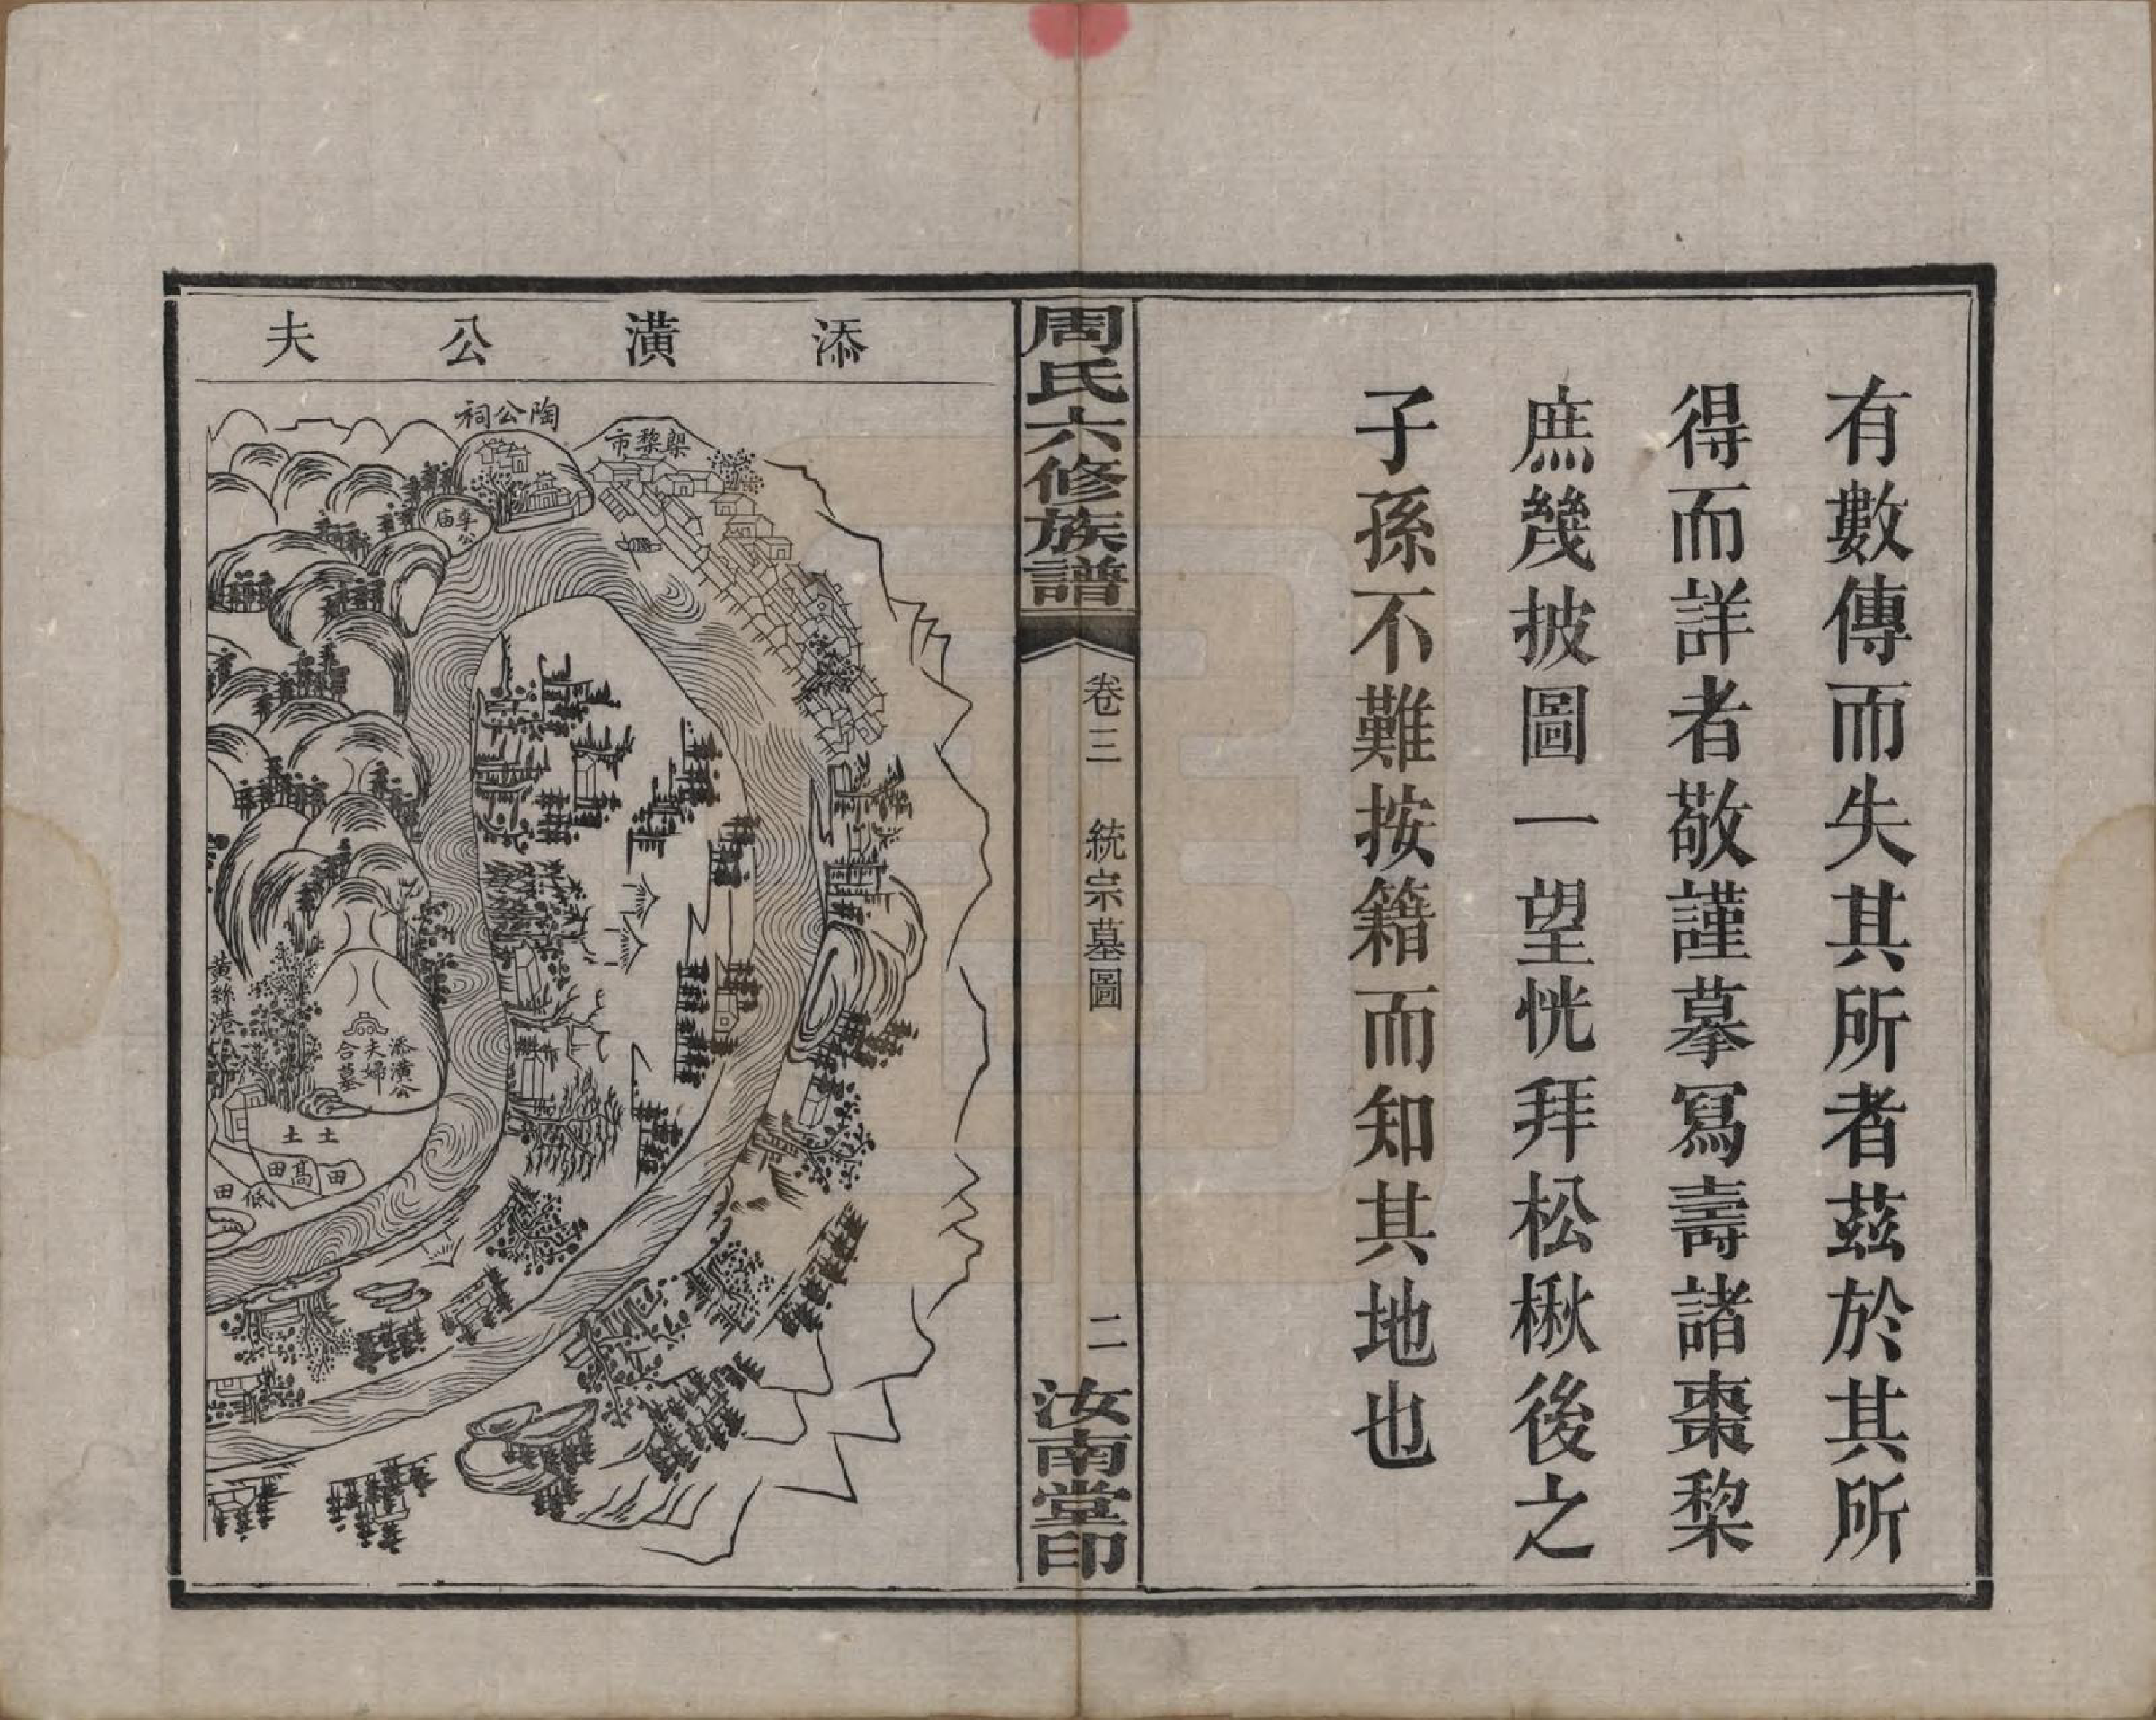 有數傳而失其所者茲於其所
得而詳者敬謹摹寫壽諸棗棃
庶幾披圖一望恍拜松楸後之
子孫不難按籍而知其地也
周氏六修族譜
卷三
統宗墓圖
二
汝南堂印
添潢公夫
㮚黎市
陶公祠
李公庙
添潢公
夫婦
合墓
黄絲港
土土
田
高田
低田